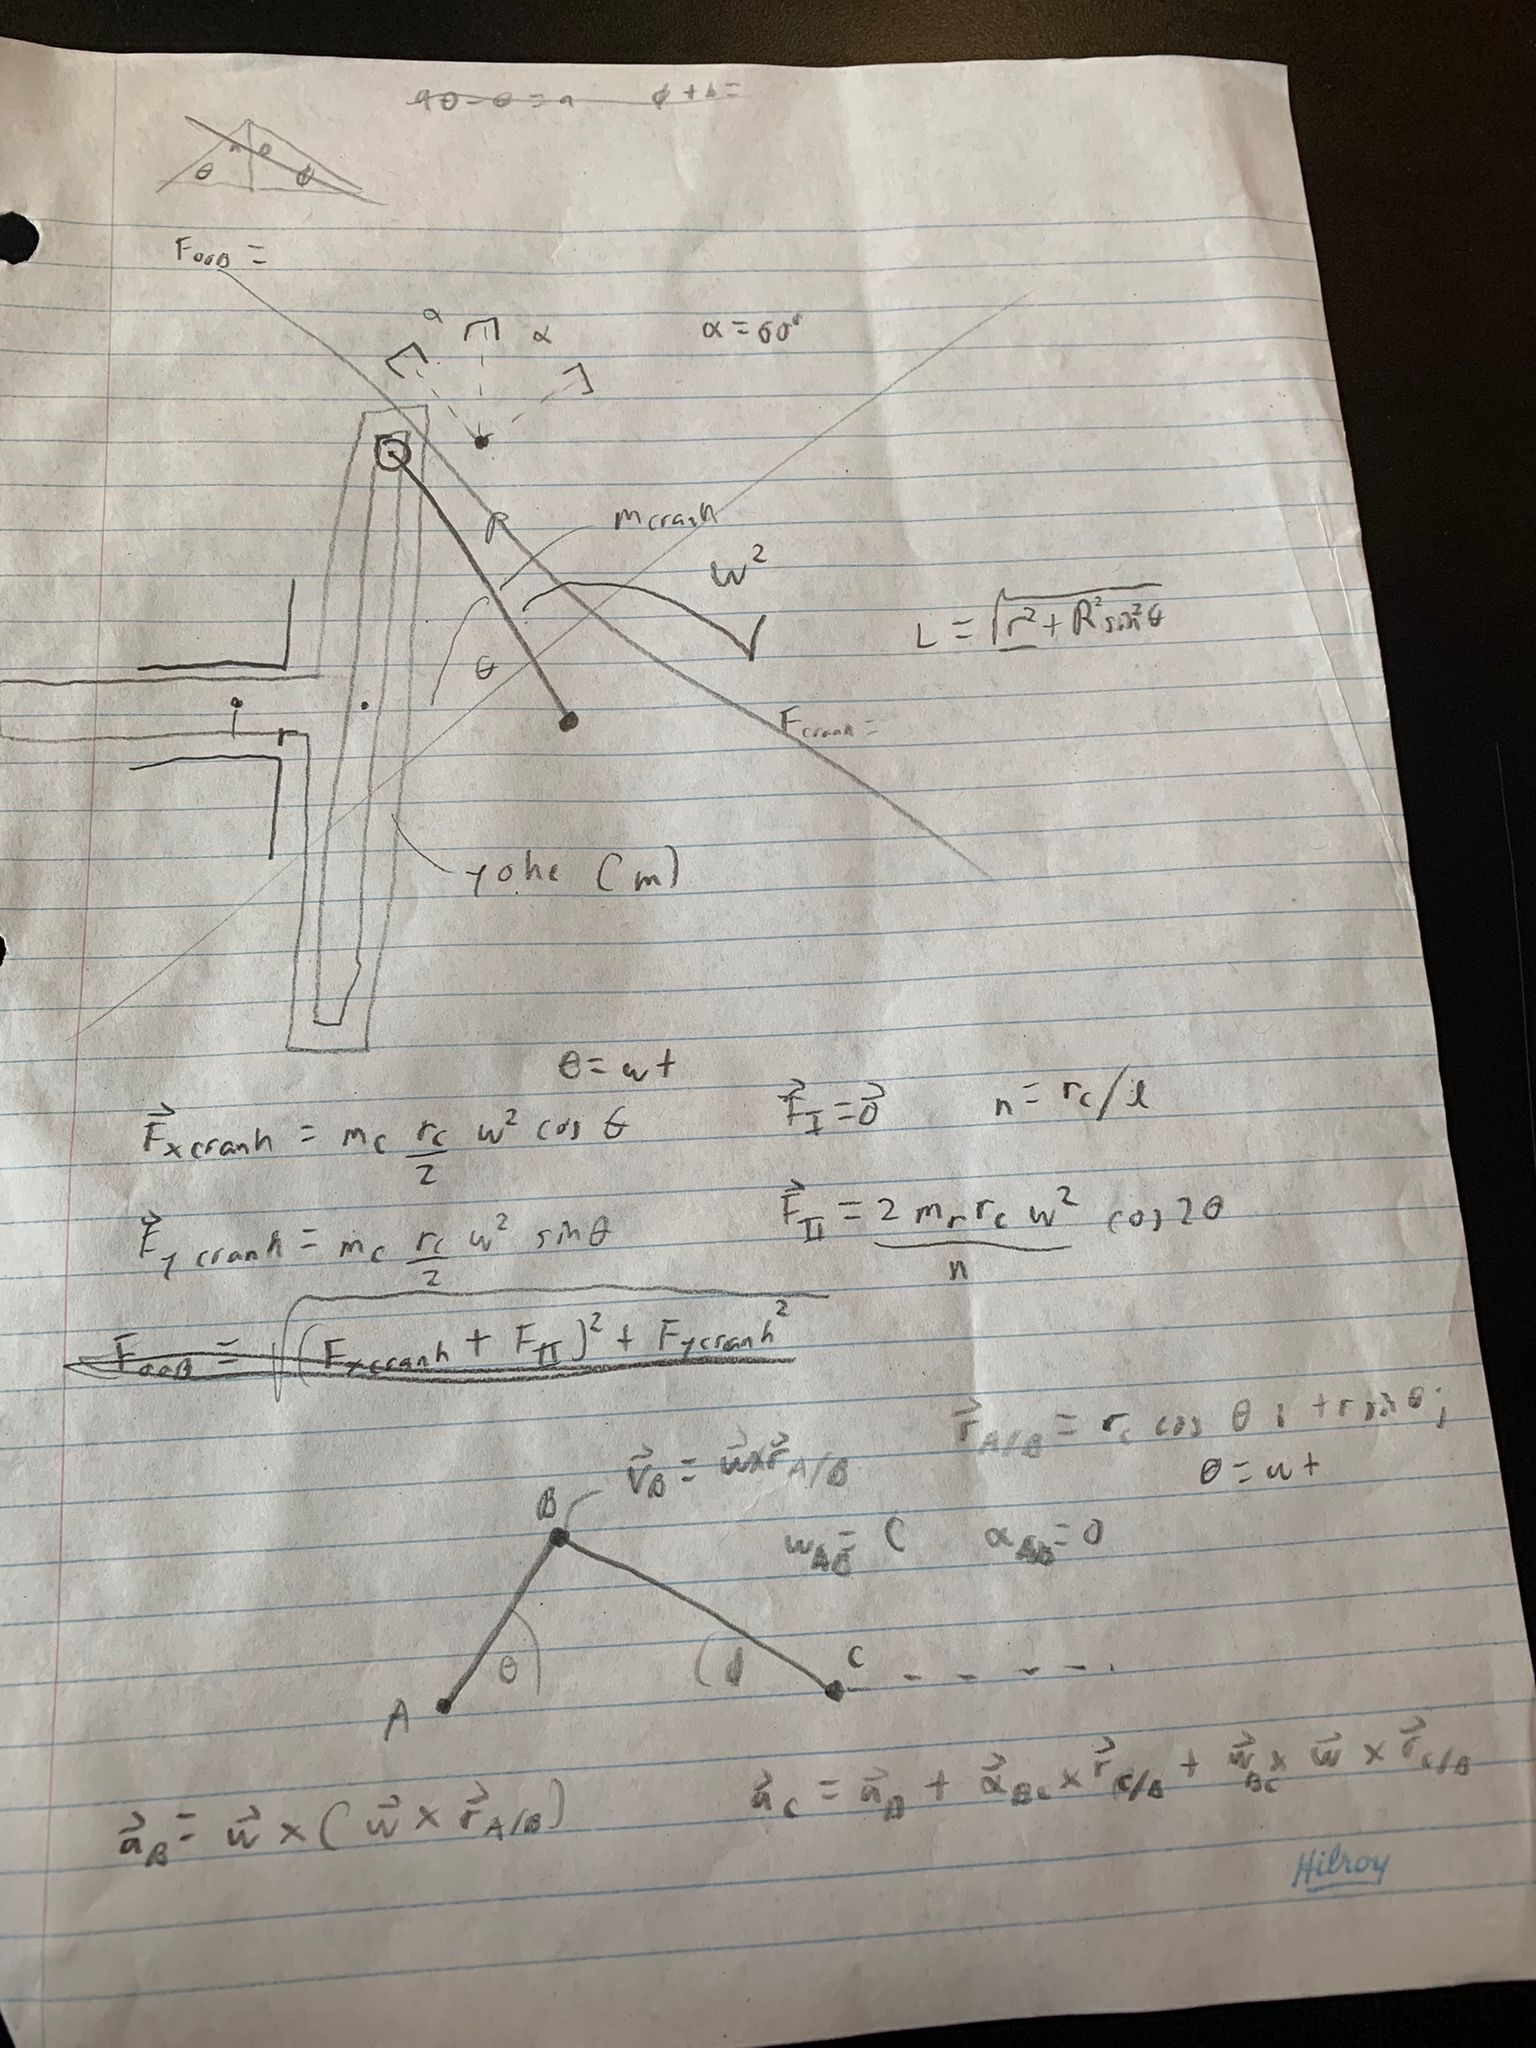 90-θ = a   ϕ + b =
θ a b ϕ
F_OOB =
α α α = 60°
R m crank
ω²
L = √(r² + R² sin²θ)
θ
r
F_crank =
yoke (m)
θ = ωt
F⃗_x crank = m_c r_c/2 ω² cos θ   F⃗_I = 0⃗   n = r_c/l
F⃗_y crank = m_c r_c/2 ω² sin θ   F⃗_II = 2 m_r r_c ω²/n cos 2θ
F_OOB = √((F_x crank + F_II)² + F_y crank²)
r⃗_A/B = r_c cos θ i + r sin θ j
v⃗_B = ω⃗ x r⃗_A/B   θ = ωt
B
ω_AB = C   α_AB = 0
θ ϕ C
A
a⃗_C = a⃗_B + α⃗_BC x r⃗_C/B + ω⃗_BC x ω⃗ x r⃗_C/B
a⃗_B = ω⃗ x (ω⃗ x r⃗_A/B)
Hilroy